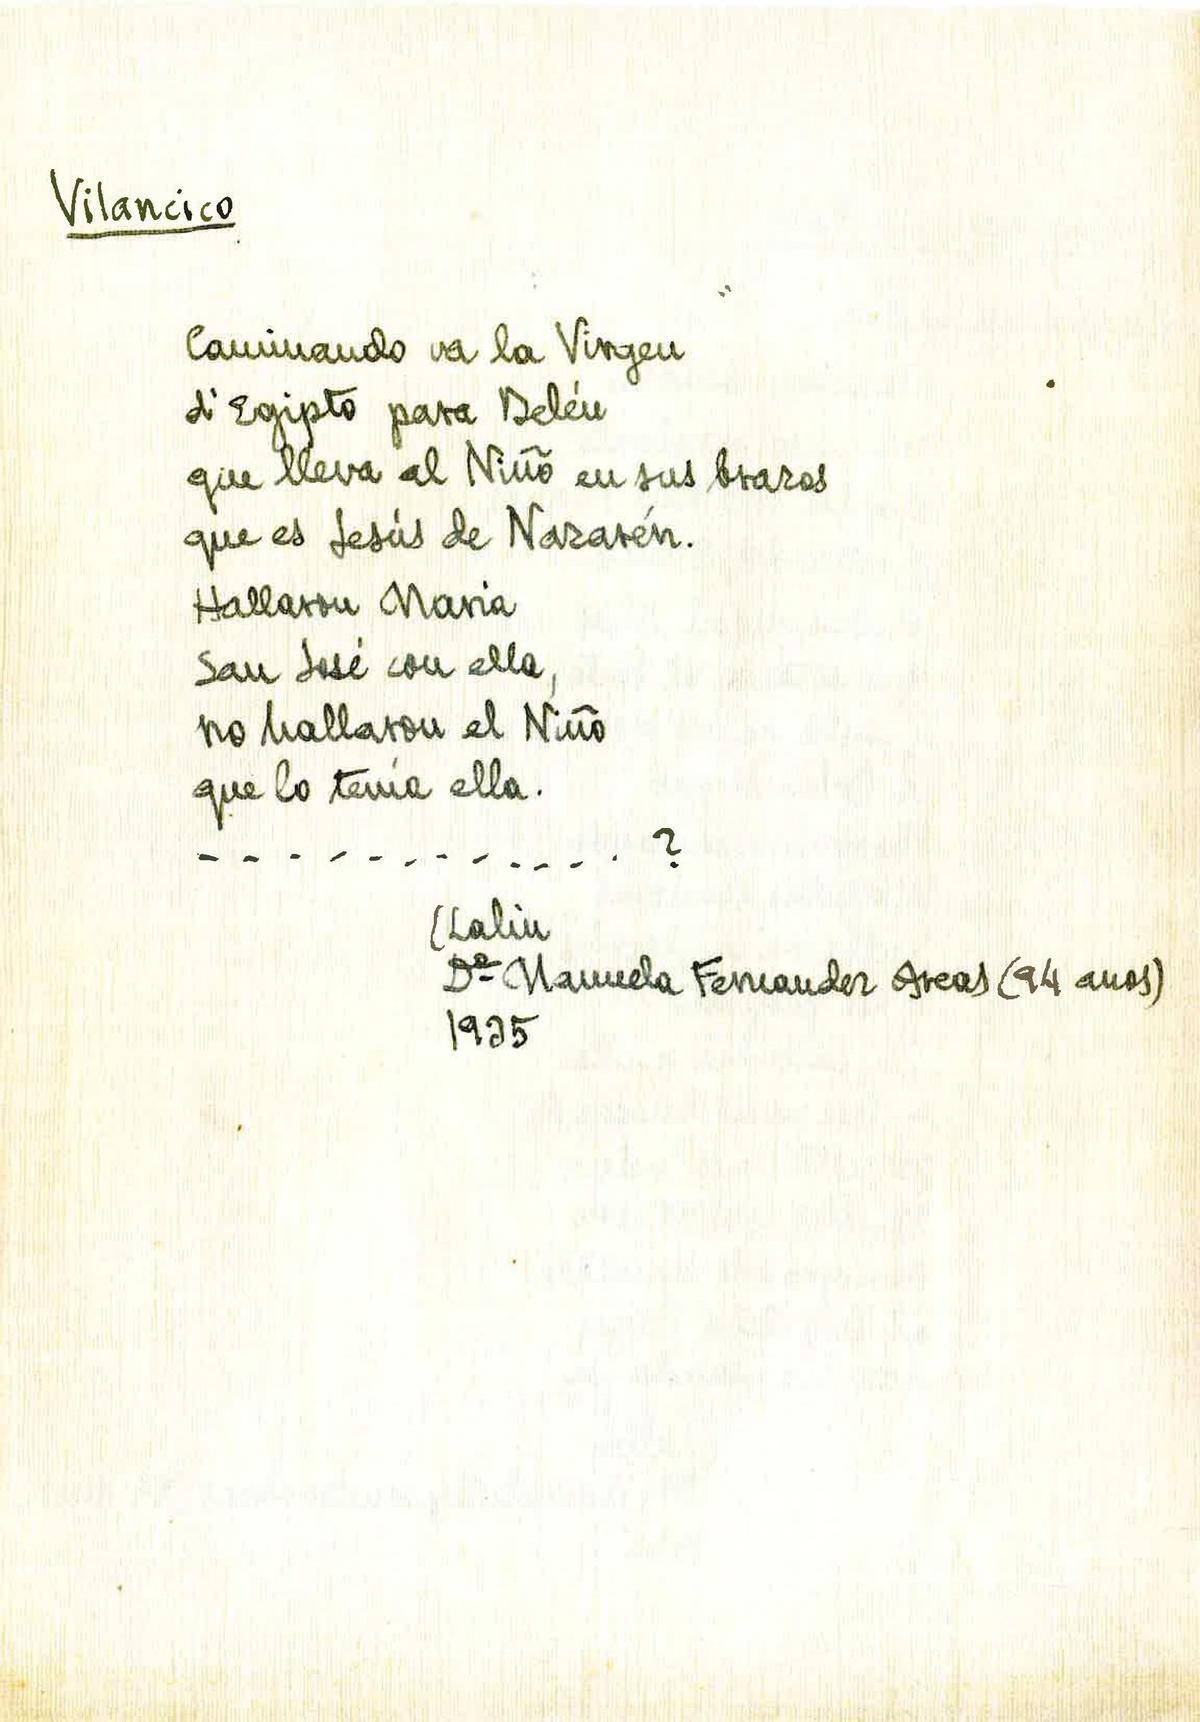 Vilancico
Caminando va la Virgen
d'Egipto para Belén
que lleva al Niño en sus brazos
que es Jesús de Nazarén.
Hallaron Maria
San José con ella,
no hallaron el Niño
que lo tenía ella.
- - - - - - - - - - - - - . ?
(Lalin
Dª Manuela Fernandez Areas (94 anos)
1935